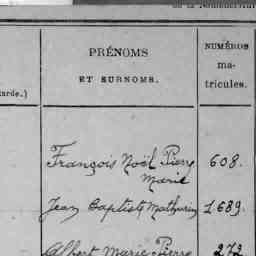 PRÉNOMS
ET SURNOMS.
NUMÉROS
ma-
tricules.
arde.)
François Noël Pierre 608.
Marie
Jean Baptiste Mathurin 1689.
Albert Marie Pierre 272